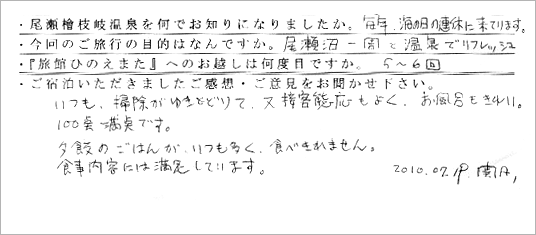 ・尾瀬檜枝岐温泉を何でお知りになりましたか。毎年、海の日の連休に来ています。
・今回のご旅行の目的はなんですか。尾瀬沼一周と温泉でリフレッシュ
・『旅館ひのえまた』へのお越しは何度目ですか。5～6回
・ご宿泊いただきましたご感想・ご意見をお聞かせ下さい。
いつも、掃除がゆきとどいて、又接客態応もよく、お風呂もきれい。
100点満点です。
夕飯のごはんが、いつも多く、食べきれません。
食事内容には満足しています。
2010.07.19.